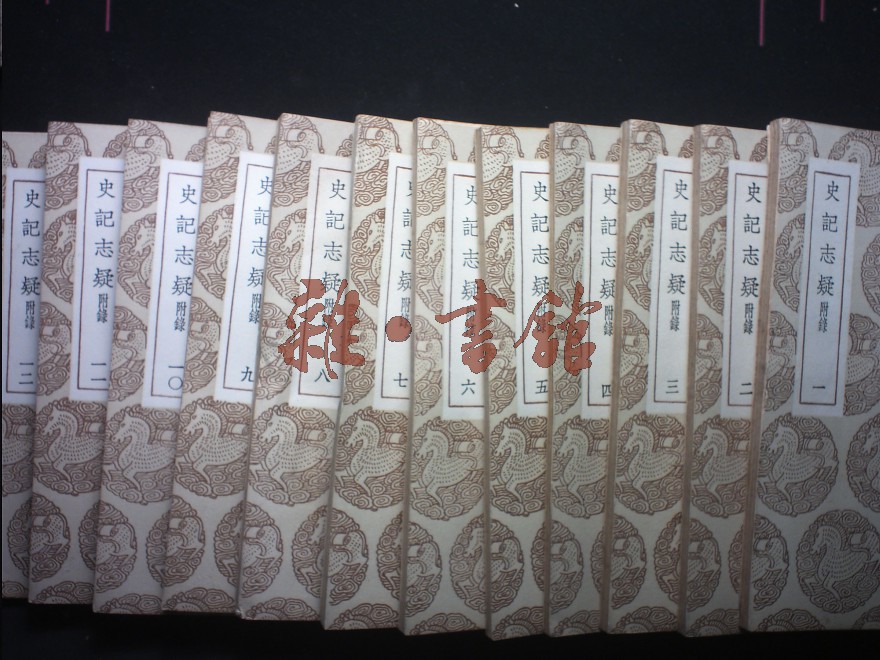 史記志疑附錄 一
史記志疑附錄 二
史記志疑附錄 三
史記志疑附錄 四
史記志疑附錄 五
史記志疑附錄 六
史記志疑附錄 七
史記志疑附錄 八
史記志疑附錄 九
史記志疑附錄 一〇
史記志疑附錄 一一
史記志疑附錄 一二
雜·書館